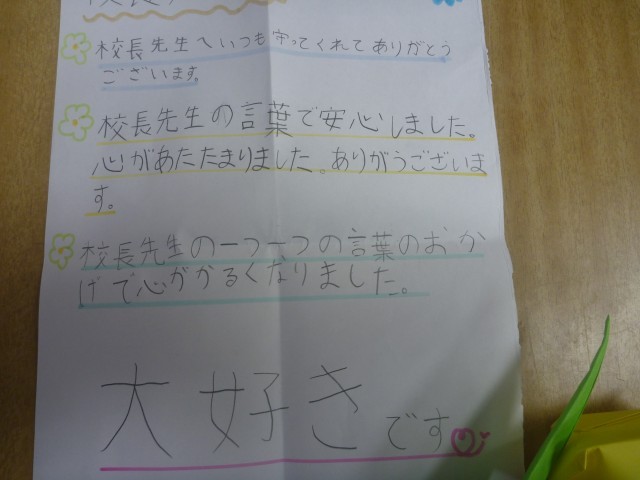 校長先生へいつも守ってくれてありがとう
ございます。
校長先生の言葉で安心しました。
心があたたまりました。ありがうございま
す。
校長先生の一つ一つの言葉のおか
げで心がかるくなりました。
大好きです